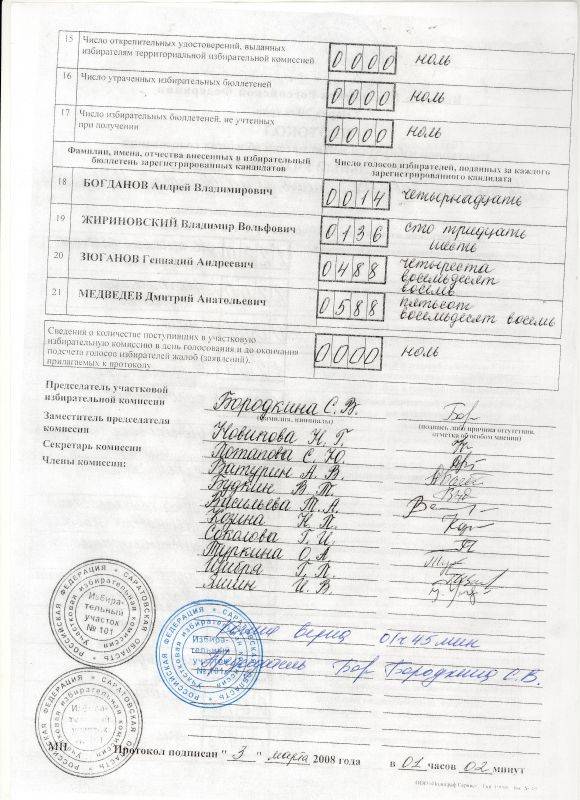 15 Число открепительных удостоверений, выданных
избирателям территориальной избирательной комиссией 0000 ноль
16 Число утраченных избирательных бюллетеней 0000 ноль
17 Число избирательных бюллетеней, не учтенных
при получении 0000 ноль
Фамилии, имена, отчества внесенных в избирательный
бюллетень зарегистрированных кандидатов
Число голосов избирателей, поданных за каждого
зарегистрированного кандидата
18 БОГДАНОВ Андрей Владимирович 0014 четырнадцать
19 ЖИРИНОВСКИЙ Владимир Вольфович 0136 сто тридцать
шесть
20 ЗЮГАНОВ Геннадий Андреевич 0488 четыреста
восемьдесят
восемь
21 МЕДВЕДЕВ Дмитрий Анатольевич 0588 пятьсот
восемьдесят восемь
Сведения о количестве поступивших в участковую
избирательную комиссию в день голосования и до окончания
подсчета голосов избирателей жалоб (заявлений),
прилагаемых к протоколу 0000 ноль
Председатель участковой
избирательной комиссии Бородкина С.В. Бор
(фамилия, инициалы) (подпись либо причина отсутствия,
отметка об особом мнении)
Заместитель председателя
комиссии Новикова Н. Г.
Секретарь комиссии Потапова С. Ю.
Члены комиссии: Батурин А. В.
Будкин В. Т.
Васильева Т. А.
Козина Н. П.
Соколова Г. И.
Туркина О. А.
Г. П.
Ямин И. В.
РОССИЙСКАЯ ФЕДЕРАЦИЯ * САРАТОВСКАЯ ОБЛАСТЬ *
Участковая избирательная комиссия
Избира-
тельный
участок
№ 101
РОССИЙСКАЯ ФЕДЕРАЦИЯ * САРАТОВСКАЯ ОБЛАСТЬ *
Участковая избирательная комиссия
Избира-
тельный
участок
№ 101
верна 01ч 45 мин
Председатель Бор Бородкина С.В.
РОССИЙСКАЯ ФЕДЕРАЦИЯ * САРАТОВСКАЯ ОБЛАСТЬ *
МП Протокол подписан " 3 " марта 2008 года в 01 часов 02 минут